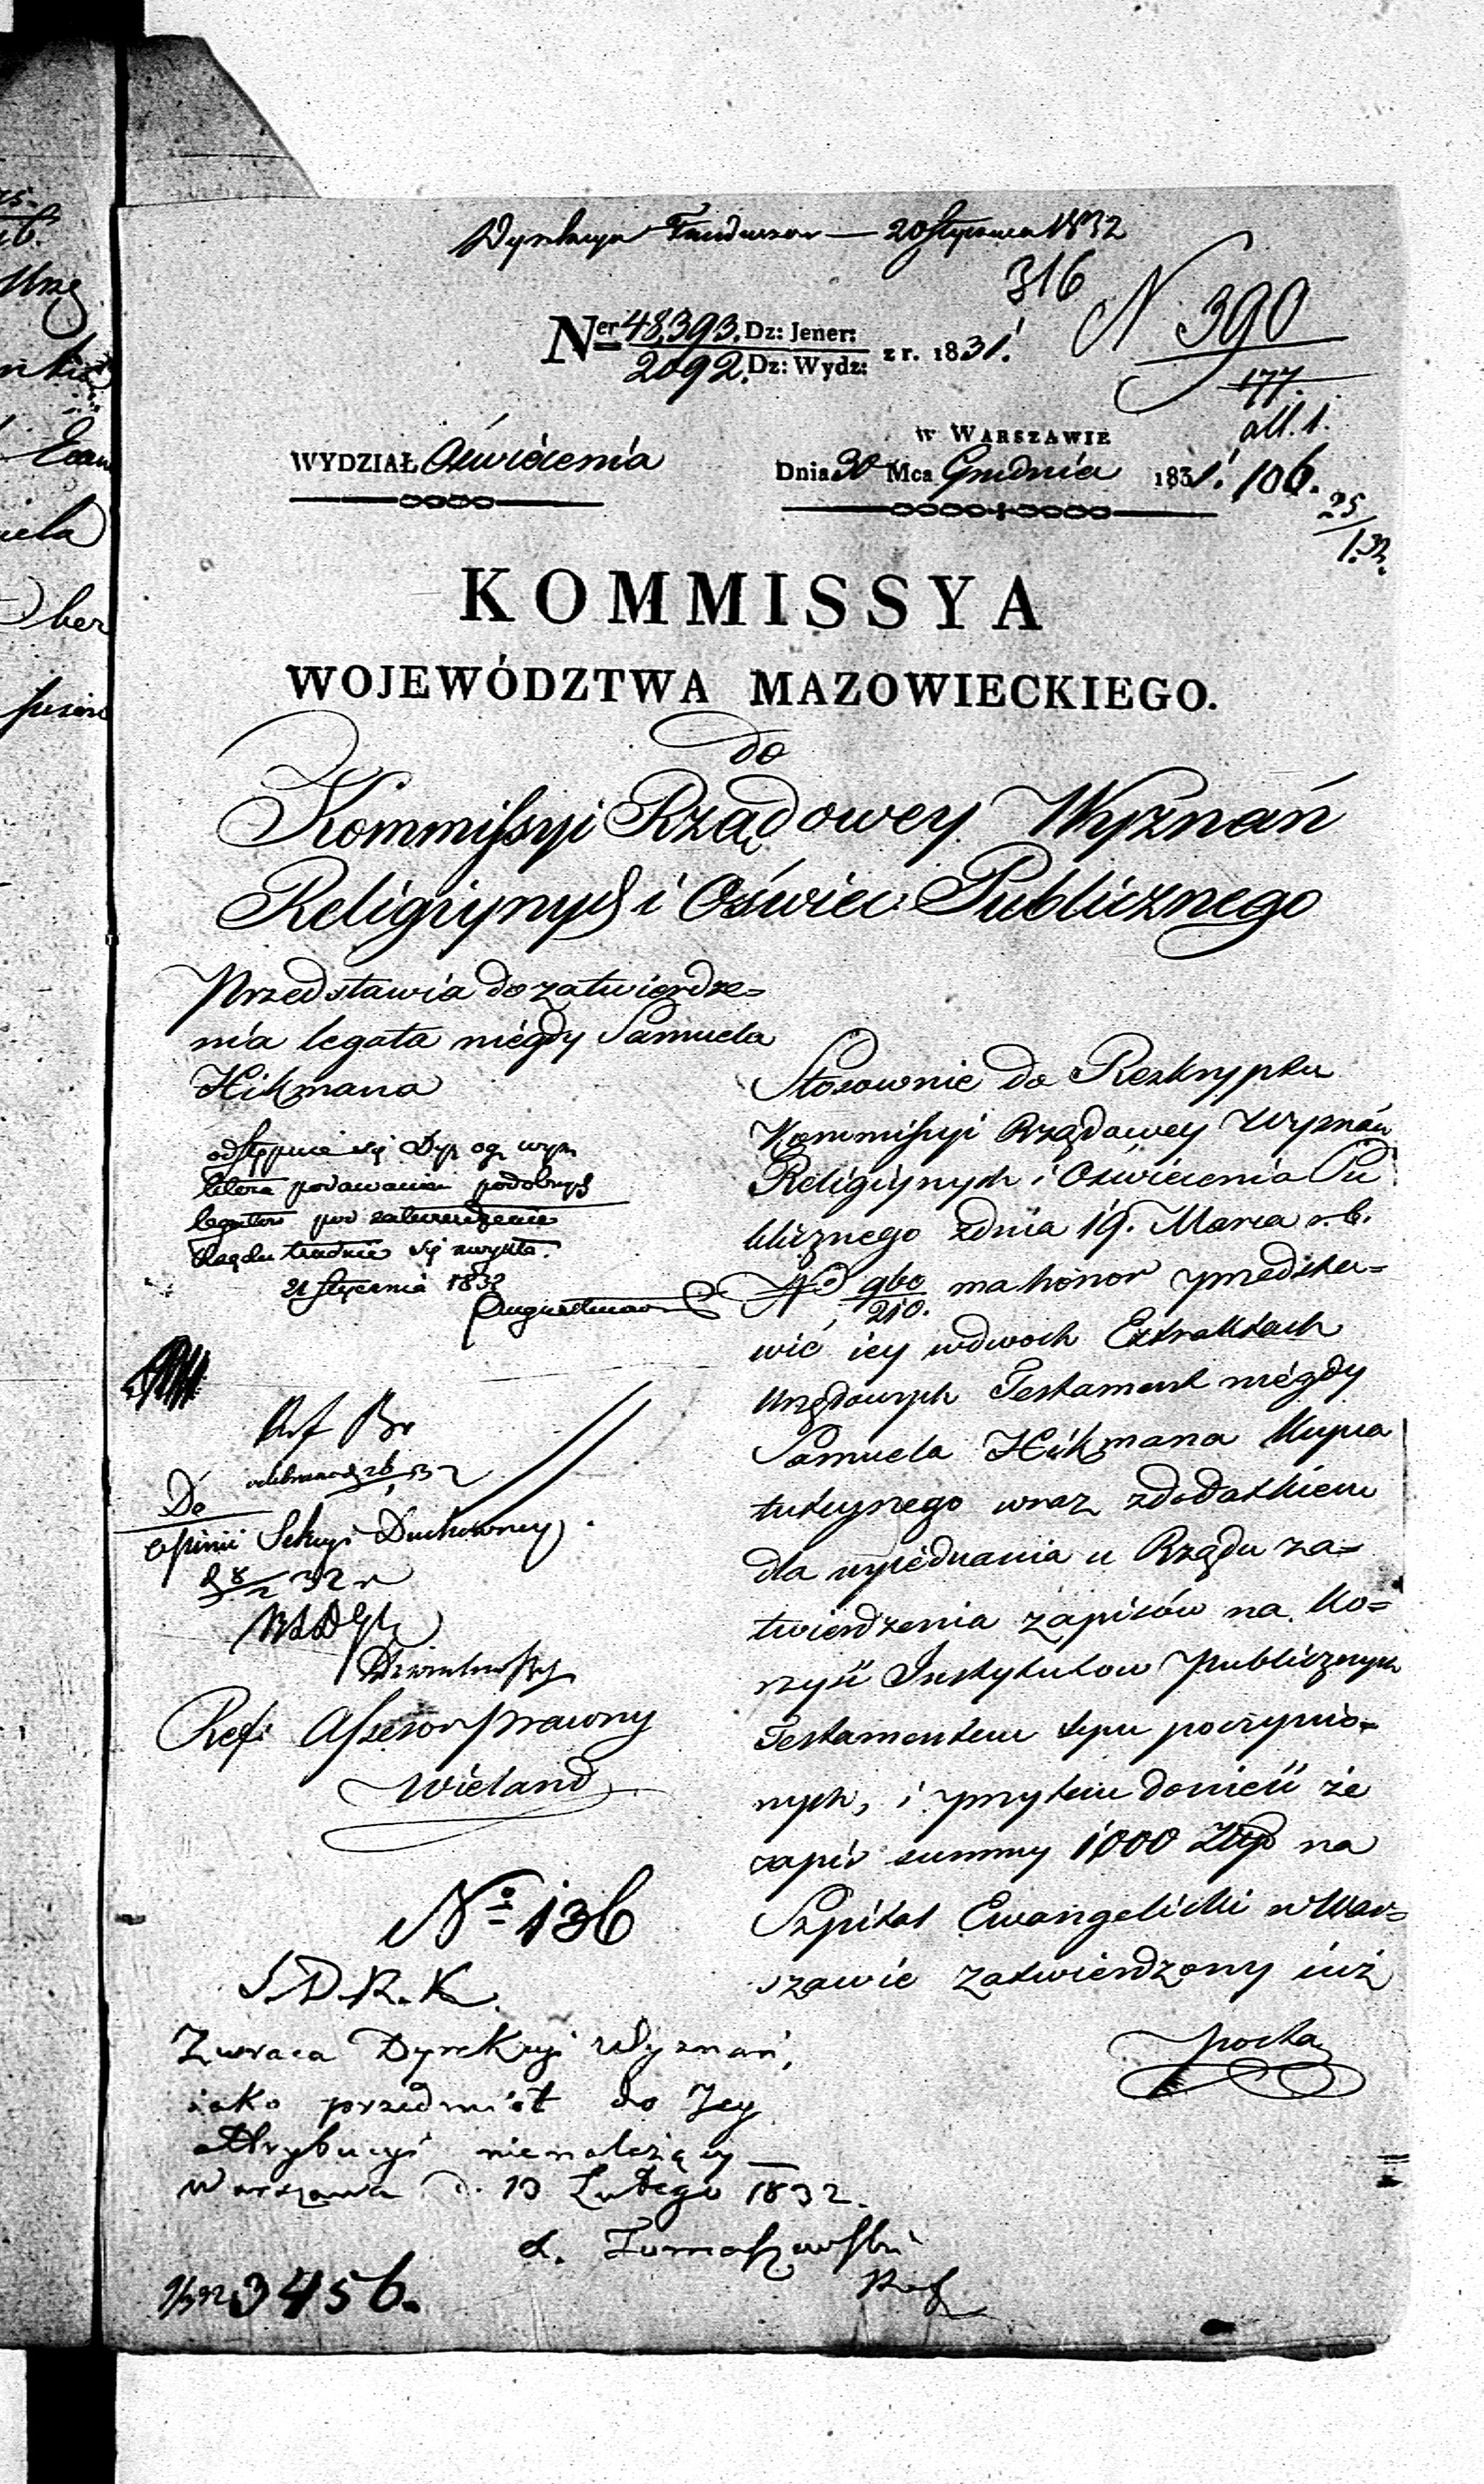 Dyrekcya Funduszów — 20 Stycznia 1832
316
N 390
177.
Ner 48,393. Dz: Jener:
2092. Dz: Wydz: z r. 1831.
all. 1.
w WARSZAWIE
WYDZIAŁ Oświécenia
Dnia 30 Mca Grudnia 1831. 106.
25/1.32.
KOMMISSYA
WOJEWÓDZTWA MAZOWIECKIEGO.
do
Kommissyi Rządowey Wyznań
Religiynych i Oświec: Publicznego
Przedstawia do zatwierdze=
nia legata niégdy Samuela
Hikmana
odstępuie się Dyr. og. wyzn
podawanie podobnych
legatów pod zatwierdzenie
Rządu trudnić się zwykła.
21 Stycznia 1832
Augustinow
Ref Br
odebrano d 26/1 32
Do
opinii Sekcyi Duchowney.
d 8/2 32 r
Ref: Assesor prawny
Wieland
No 136
S.D.R.K.
Zwraca Dyrekcyi Wyznań,
iako przedmiót do Jey
attrybucyi nienależący —
Warszawa d. 13 Lutego 1832.
L. Tomaszewski
Ref
3456.
Stosownie do Reskryptu
Kommissyi Rządowey Wyznań
Religiynych i Oświecenia Pu
blicznego zdnia 19. Marca r. b.
No 960/210. ma honor przedsta=
wić iey wdwoch Extraktach
Urzędowych Testament niégdy
Samuela Hikmana Kupca
tuteysnego wraz zdodatkiem
dla wyiédnania u Rządu za=
twierdzenia zapisów na ko=
rzyść Instytutow publicznych
Testamentem tym poczynio=
nych, i przytem donieść że
zapis summy 1000 Złtp na
Szpital Ewangelicki w War=
szawie zatwierdzony iuż
została